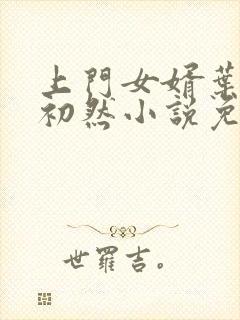 上門女婿葉
初然小説免
世羅吉。